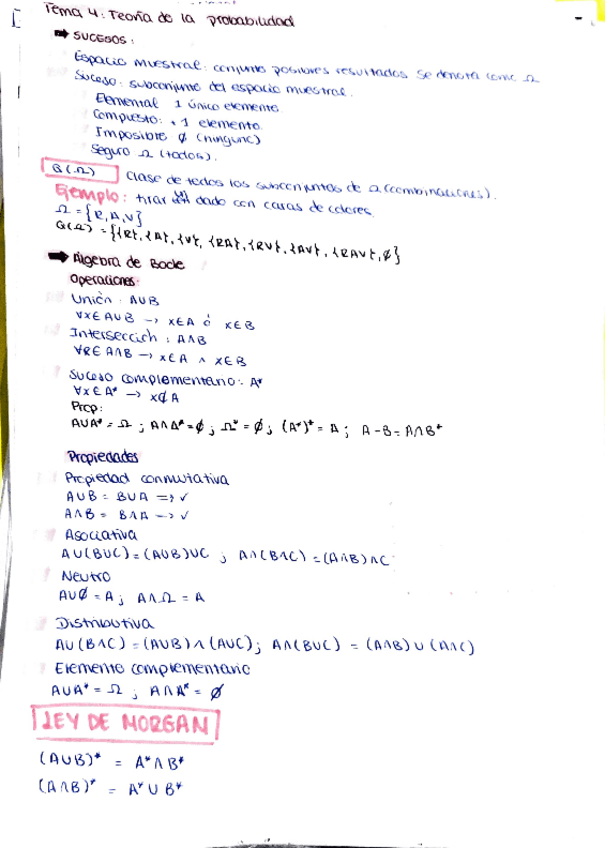 Tema 4: Teoría de la probabilidad
➡ SUCESOS:
Espacio muestral: conjunto posibles resultados se denota como Ω
Suceso: subconjunto del espacio muestral.
Elemental 1 único elemento
Compuesto: +1 elemento
Imposible ∅ (ninguno)
Seguro Ω (todos).
G(Ω) Clase de todos los subconjuntos de Ω (combinaciones).
Ejemplo: tirar dado con caras de colores
Ω = {R, A, V}
G(Ω) = {{R}, {A}, {V}, {RA}, {RV}, {AV}, {RAV}, ∅}
➡ Álgebra de Boole
Operaciones:
Unión: A∪B
∀x∈A∪B → x∈A ó x∈B
Intersección: A∩B
∀R∈A∩B → x∈A ∧ x∈B
Suceso complementario: A*
∀x∈A* → x∉A
Prop:
A∪A* = Ω ; A∩A* = ∅ ; Ω* = ∅ ; (A*)* = A ; A-B = A∩B*
Propiedades
Propiedad conmutativa
A∪B = B∪A => ✓
A∩B = B∩A -> ✓
Asociativa
A∪(B∪C) = (A∪B)∪C ; A∩(B∩C) = (A∩B)∩C
Neutro
A∪∅ = A ; A∩Ω = A
Distributiva
A∪(B∩C) = (A∪B)∩(A∪C) ; A∩(B∪C) = (A∩B)∪(A∩C)
Elemento complementario
A∪A* = Ω ; A∩A* = ∅
LEY DE MORGAN
(A∪B)* = A*∩B*
(A∩B)* = A*∪B*